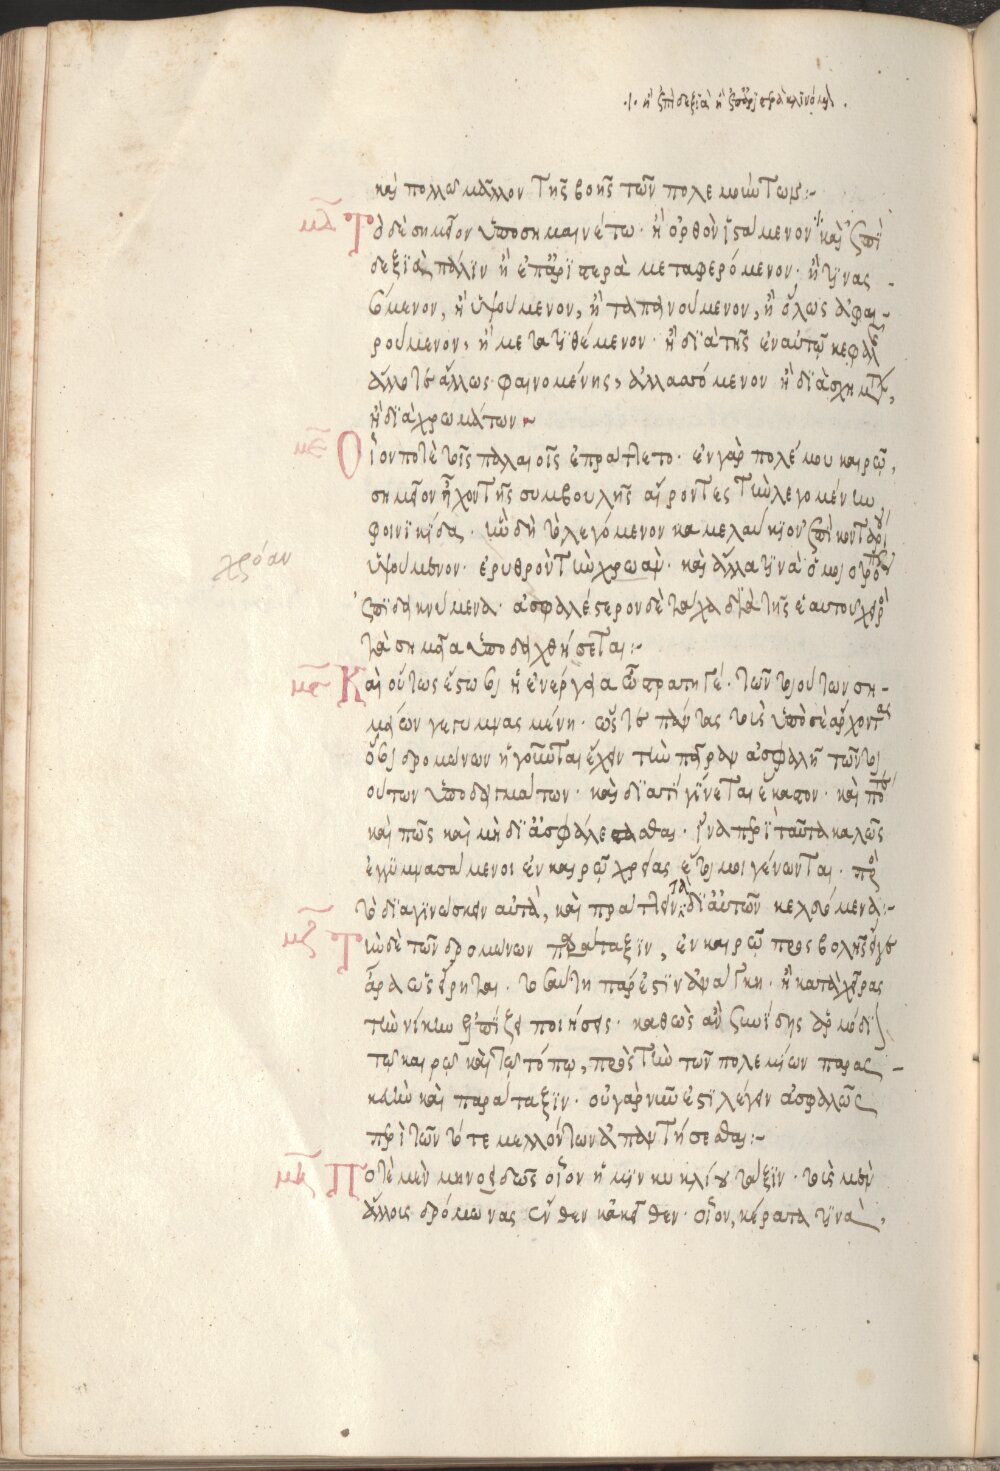 ·/· ἢ ἐπὶ δεξιὰ ἢ ἐπ' ἀριστερὰ κλινόμενον.
καὶ πολλῶ μᾶλλον τῆς βοῆς τῶν πολεμούντων:-
μδ Τὸ δὲ σημεῖον ὑποσημαινέτω· ἢ ὀρθὸν ἱστάμενον ·/· καὶ ἐπὶ
δεξιὰ πάλιν ἢ ἐπ' ἀριστερὰ μεταφερόμενον· ἢ τινας-
σόμενον, ἢ ὑψούμενον, ἢ ταπεινούμενον, ἢ ὅλως ἀφαι-
ρούμενον, ἢ μετατιθέμενον· ἢ διὰ τῆς ἐν αὐτῷ κεφαλῆς
ἄλλοτε ἄλλως φαινομένης, ἀλλασσόμενον ἢ διὰ σχημάτων,
ἢ διὰ χρωμάτων~
με Οἷον ποτὲ τοῖς παλαιοῖς ἐπράττετο· ἐν γὰρ πολέμου καιρῷ,
σημεῖον εἶχον τῆς συμβουλῆς αἴροντες τὴν λεγομένην
φοινικίδα· ἦν δὲ τὸ λεγόμενον καμελαύκιον ἐπὶ κονταρίου
ὑψούμενον· ἐρυθρὸν τὴν χρωαν· καὶ ἄλλα τινὰ ὁμοιοτρόπως
χρόαν
ἐπιδεικνύμενα· ἀσφαλέστερον δὲ τάχα διὰ τῆς ἑαυτοῦ χειρὸς
τὰ σημεῖα ὑποδειχθήσεται:-
μς Καὶ οὕτως ἔστω σοι ἡ ἐνέργεια ὦ στρατηγέ· τῶν τοιούτων ση-
μείων γεγυμνασμένη· ὥστε πάντας τοὺς ὑπὸ σὲ ἄρχοντας
ὅσοι δρομώνων ἡγοῦνται ἔχειν τὴν πεῖραν ἀσφαλῆ τῶν τοι
ούτων ὑποδειγμάτων· καὶ διατί γίνεται ἕκαστον· καὶ πότε
καὶ πῶς καὶ μὴ διασφάλεσθαι· ἵνα περὶ ταῦτα καλῶς
ἐγγυμνασάμενοι ἐν καιρῷ χρείας ἕτοιμοι γένωνται· πρὸς
τὸ διαγινώσκειν αὐτὰ, καὶ πράττειν τὰ δι' αὐτῶν κελευόμενα:-
μζ Τὴν δὲ τῶν δρομώνων παράταξιν, ἐν καιρῷ προσβολῆς εἴγε
ἄρα ὡς εἴρηται· τοσαύτη πάρεστιν ἀνάγκη· ἢ κατὰ χεῖρας
τὴν νίκην ἐλπίζει ποιήσεις· καθὼς ἂν συνίδης ἁρμόδιον
τῷ καιρῷ καὶ τῷ τόπῳ, πρὸς τὴν τῶν πολεμίων παρασ-
κευὴν καὶ παράταξιν· οὐ γὰρ νῦν ἐστὶ λέγειν ἀσφαλῶς
περὶ τῶν τότε μελλόντων ἀπαντήσεσθαι:-
μη Ποτὲ μὲν μηνοειδῶς οἷον ἡμικυκλίου τάξιν· τοὺς μὲν
ἄλλους δρόμωνας ἔνθεν κἀκεῖθεν· οἷον, κέρατα τινὰ,